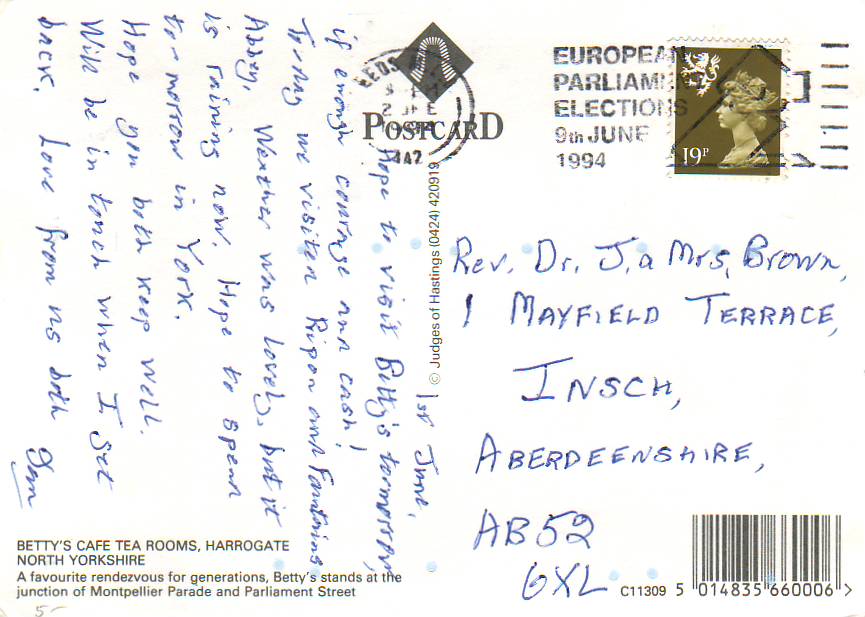 POSTCARD
EUROPEAN
PARLIAMEN
ELECTIONS
9th JUNE
1994
19P
1st June,
Hope to visit Betty's tomorrow,
if enough courage and cash!
Today we visited Ripon and Fountains
Abbey. Weather was lovely, but it
is raining now. Hope to spend
to-morrow in York.
Hope you both keep well.
Will be in touch when I get
back. Love from us both
© Judges of Hastings (0424) 420919
Rev. Dr. J. a Mrs. Brown,
1 MAYFIELD TERRACE,
INSCH,
ABERDEENSHIRE,
AB52
6XL
BETTY'S CAFE TEA ROOMS, HARROGATE
NORTH YORKSHIRE
A favourite rendezvous for generations, Betty's stands at the
junction of Montpellier Parade and Parliament Street
C11309 5 014835 660006 >
5-